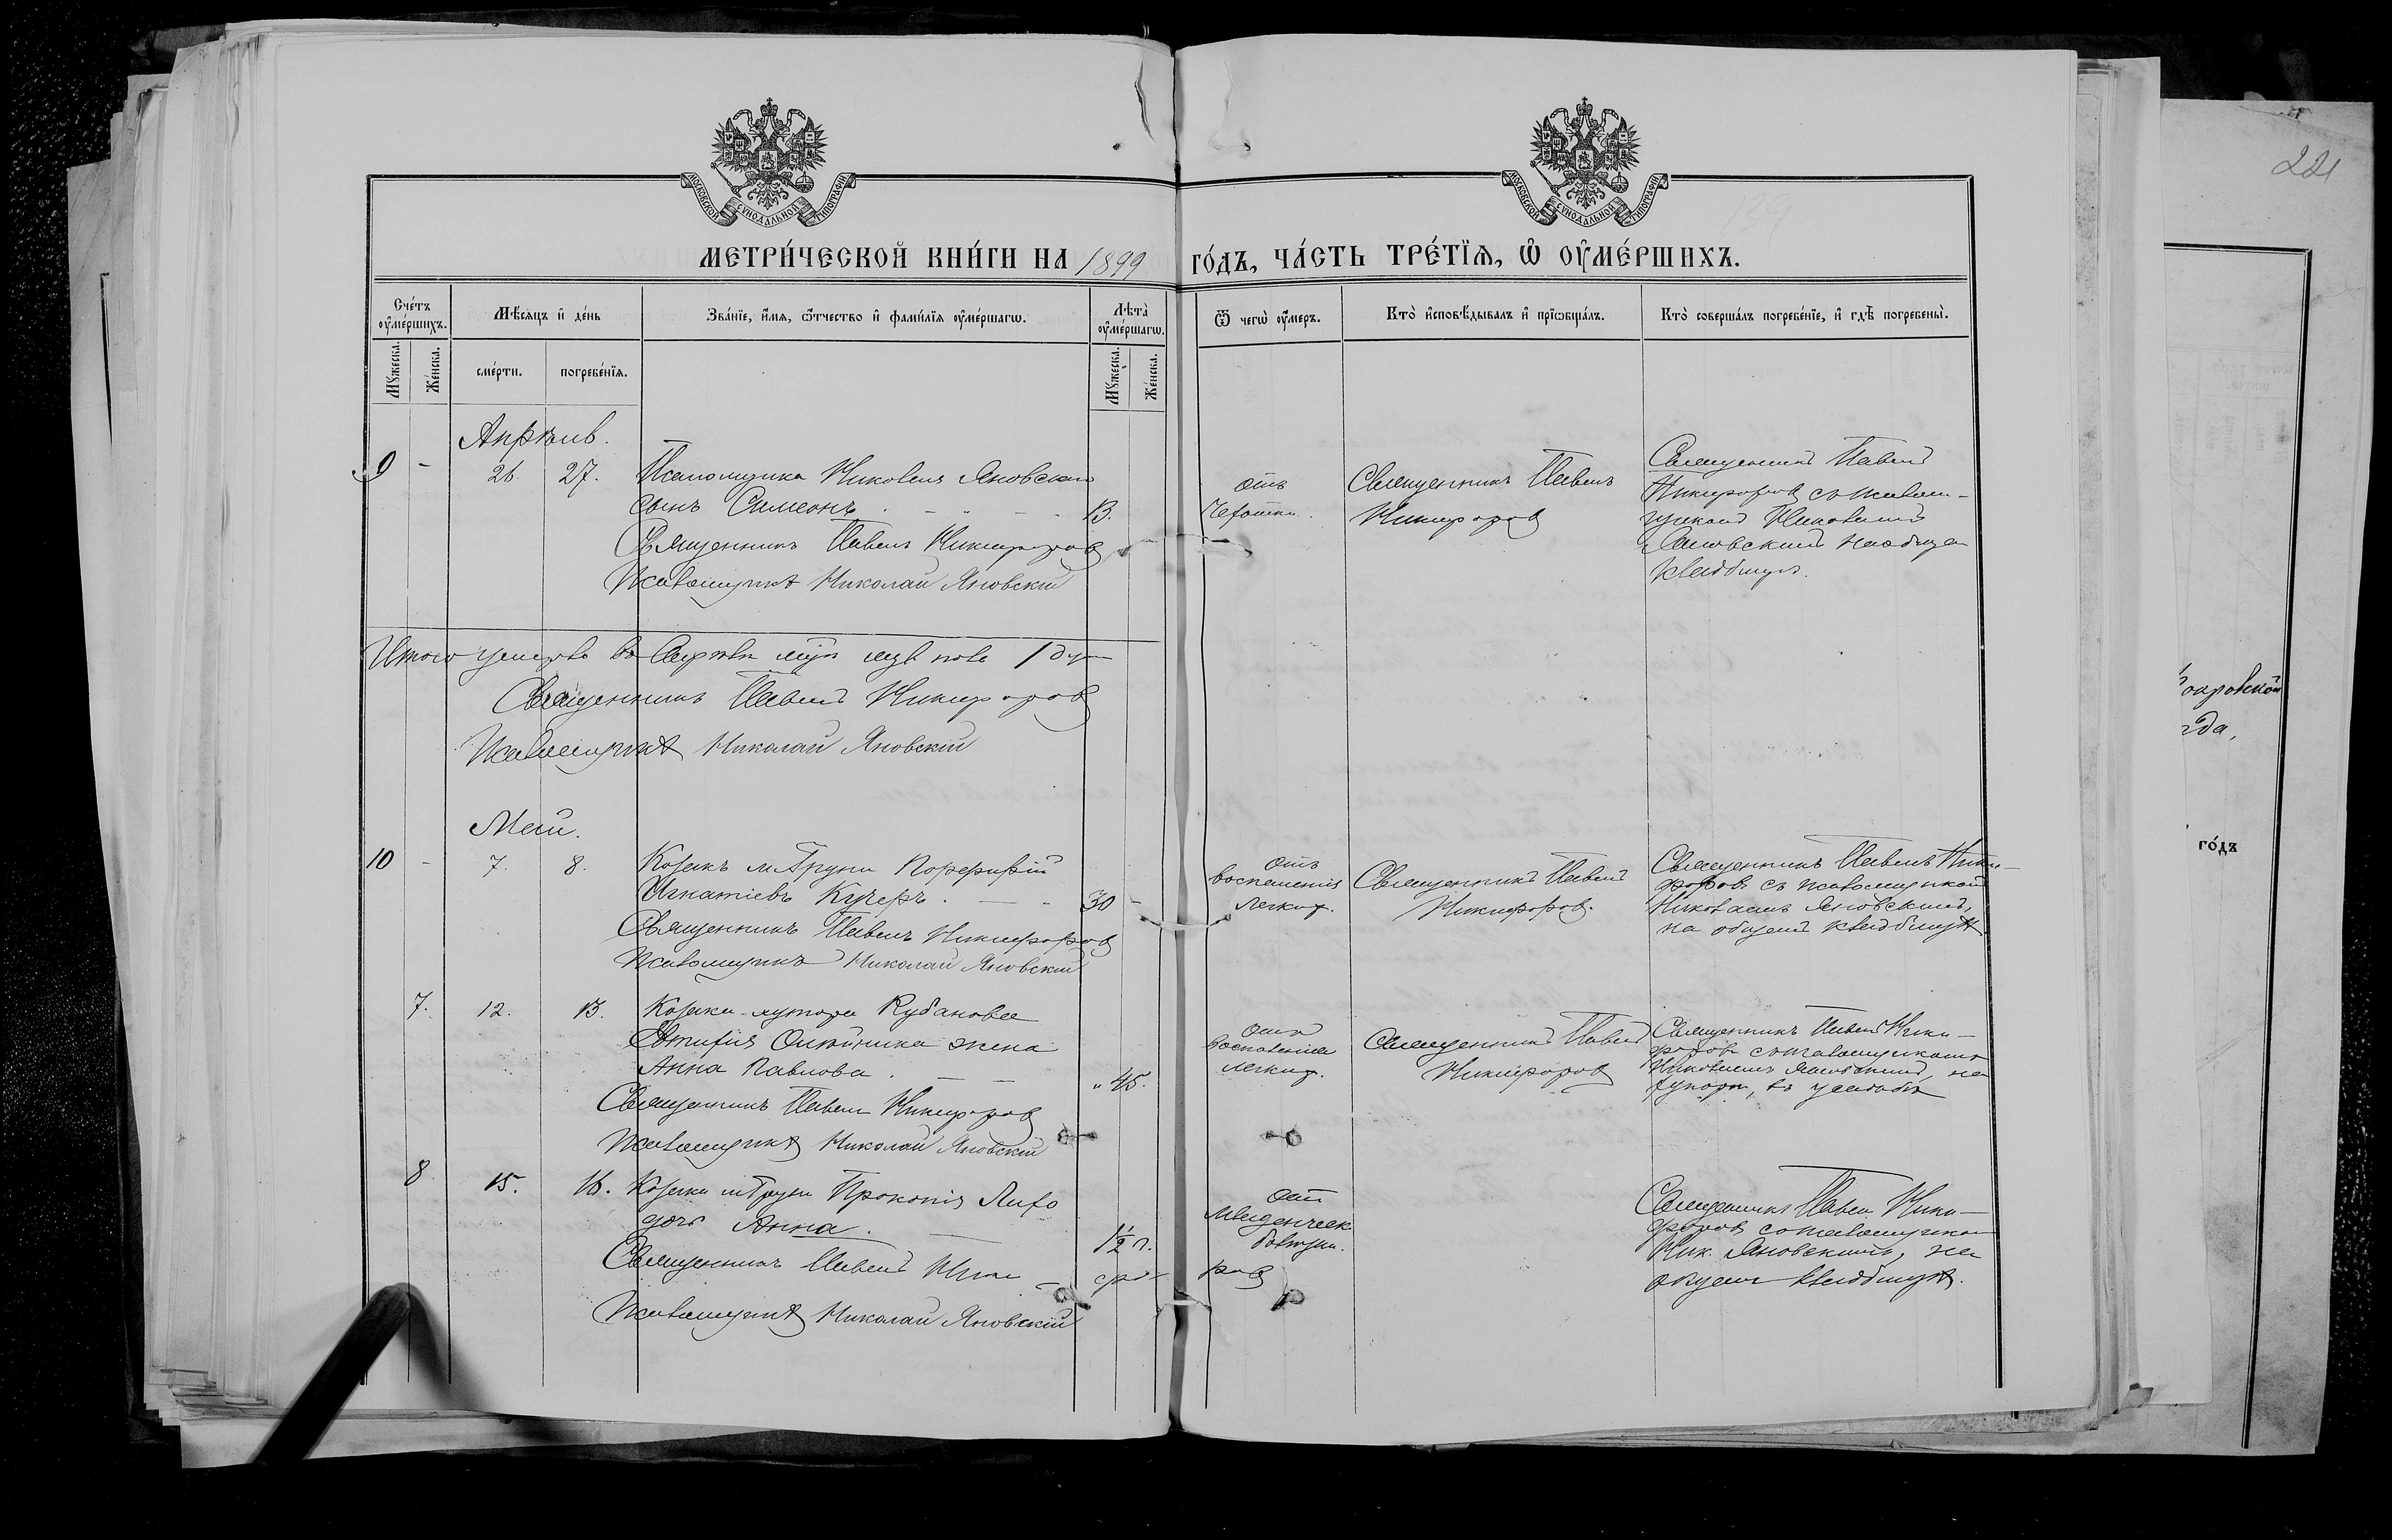 МОСКОВСКОЙ СУНОДАЛЬНОЙ ТИПОГРАФІИ
МОСКОВСКОЙ СУНОДАЛЬНОЙ ТИПОГРАФІИ
221
139
МЕТРИ́ЧЕСКОЙ КНИ́ГИ НА 1899 ГО́ДЪ, ЧА́СТЬ ТРЕ́ТЇѦ, Ѡ҆ ОУ҆МЕ́РШИХЪ.
Сче́тъ оу҆ме́ршихъ.
Мѣ́сяцъ и҆ де́нь
Зва́нїе, и҆́мѧ, ѻ҆́тчество и҆ фами́лїѧ оу҆ме́ршагѡ.
Лѣта̀ оу҆ме́ршагѡ.
Ѿ чегѡ̀ оу҆́меръ.
Кто̀ и҆сповѣ́дывалъ и҆ прїѡбща́лъ.
Кто̀ соверша́лъ погребе́нїе, и҆ гдѣ̀ погребены̀.
Мꙋ́жеска.
Же́нска.
сме́рти.
погребе́нїѧ.
Мꙋ́жеска.
Же́нска.
Апрѣль.
9 - 26. 27. Псаломщика Николая Яновскаго
сынъ Симеонъ 13.
Священникъ Павелъ Никифоровъ
Псаломщикъ Николай Яновскій
отъ
Чахотки.
Священникъ Павелъ
Никифоровъ
Священникъ Павелъ
Никифоровъ съ псалом-
щикомъ Николаемъ
Яновскимъ на общемъ
кладбищѣ.
Итого умерло въ Апрѣлѣ муж пола 1 душ
Священникъ Павелъ Никифоровъ
Псаломщикъ Николай Яновскій
Май.
10 - 7. 8. Козакъ м. Груни Порфирій
Игнатіевъ Кучеръ. 30 -
Священникъ Павелъ Никифоровъ
Псаломщикъ Николай Яновскій
отъ
воспаленія
легкихъ.
Священникъ Павелъ
Никифоровъ.
Священникъ Павелъ Ники-
форовъ съ псаломщикомъ
Николаемъ Яновскимъ,
на общемъ кладбищѣ
7. 12. 13. Козака хутора Кубанова
Евтифія Олѣйника жена
Анна Павлова. " 45.
Священникъ Павелъ Никифоровъ
Псаломщикъ Николай Яновскій
отъ
воспаленія
легкихъ.
Священникъ Павелъ
Никифоровъ
Священникъ Павелъ Ники-
форовъ съ псаломщикомъ
Николаемъ Яновскимъ, на
хуторѣ, въ усадьбѣ
8. 15. 16. Козака м. Груни Прокопія
дочь Анна. 1½ г.
Священникъ Павелъ Ники-форовъ
Псаломщикъ Николай Яновскій
отъ
младенческ
болѣзни.
Священникъ Павелъ Ники-
форовъ съ псаломщикомъ
Ник. Яновскимъ, на
общемъ кладбищѣ.
окровской
зда,
го́дъ